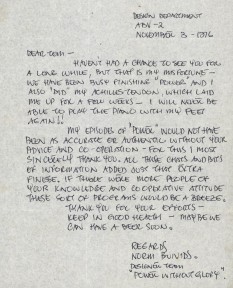 DESIGN DEPARTMENT
ABV-2
NOVEMBER 3 - 1976
DEAR TOM -
HAVENT HAD A CHANCE TO SEE YOU FOR
A LONG WHILE, BUT THAT IS MY MISFORTUNE -
WE HAVE BEEN BUSY FINISHING "POWER" AND I
ALSO "DID" MY ACHILLES TENDON, WHICH LAID
ME UP FOR A FEW WEEKS - I WILL NEVER BE
ABLE TO PLAY THE PIANO WITH MY FEET
AGAIN!!
MY EPISODE OF "POWER" WOULD NOT HAVE
BEEN AS ACCURATE OR AUTHENTIC WITHOUT YOUR
ADVICE AND CO-OPERATION - FOR THIS I MOST
SINCERELY THANK YOU. ALL THOSE CHATS AND BITS
OF INFORMATION ADDED JUST THAT EXTRA
FINESE. IF THERE WERE MORE PEOPLE OF
YOUR KNOWLEDGE AND CO-OPERATIVE ATTITUDE
THESE SORT OF PROGRAMS WOULD BE A BREEZE.
THANK YOU FOR YOUR EFFORTS -
KEEP IN GOOD HEALTH - MAYBE WE
CAN HAVE A BEER SOON.
REGARDS
NORM
DESIGNER TEAM
"POWER WITHOUT GLORY".